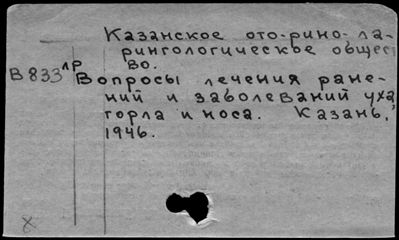 Казанское ото-рино-ла-
рингологическое общест
во.
В 833 лр Вопросы лечения ране-
ний и заболеваний уха,
горла и носа. Казань,
1946.
х